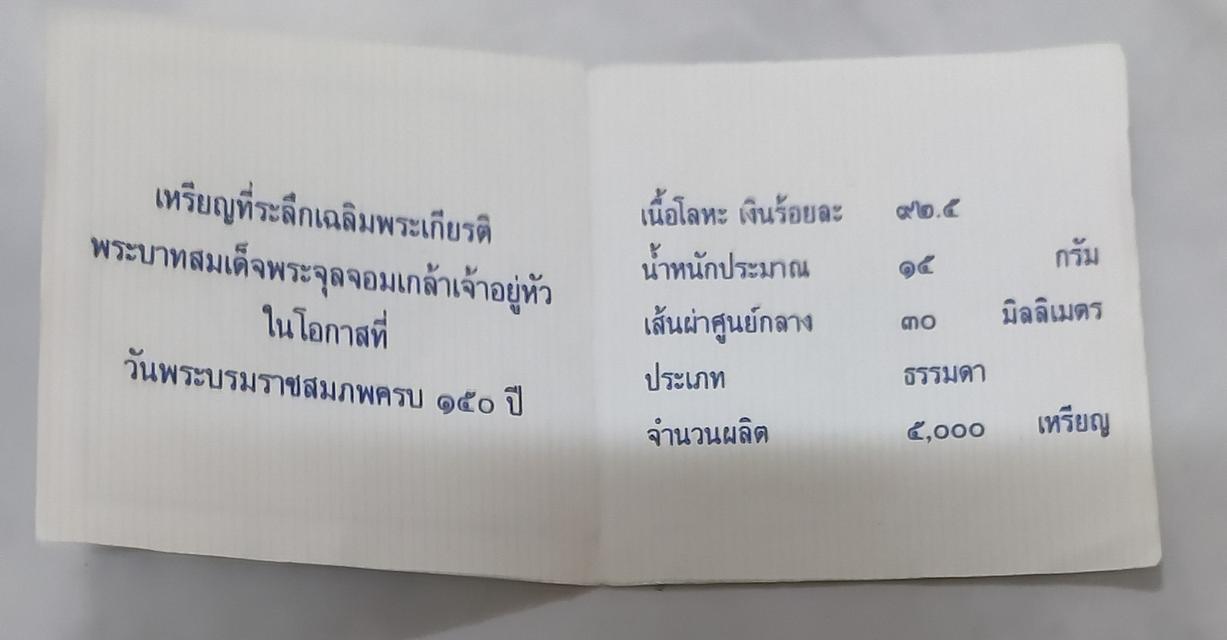 เหรียญที่ระลึกเฉลิมพระเกียรติ
พระบาทสมเด็จพระจุลจอมเกล้าเจ้าอยู่หัว
ในโอกาสที่
วันพระบรมราชสมภพครบ ๑๕๐ ปี
เนื้อโลหะ เงินร้อยละ ๙๒.๕
น้ำหนักประมาณ ๑๕ กรัม
เส้นผ่าศูนย์กลาง ๓๐ มิลลิเมตร
ประเภท ธรรมดา
จำนวนผลิต ๕,๐๐๐ เหรียญ